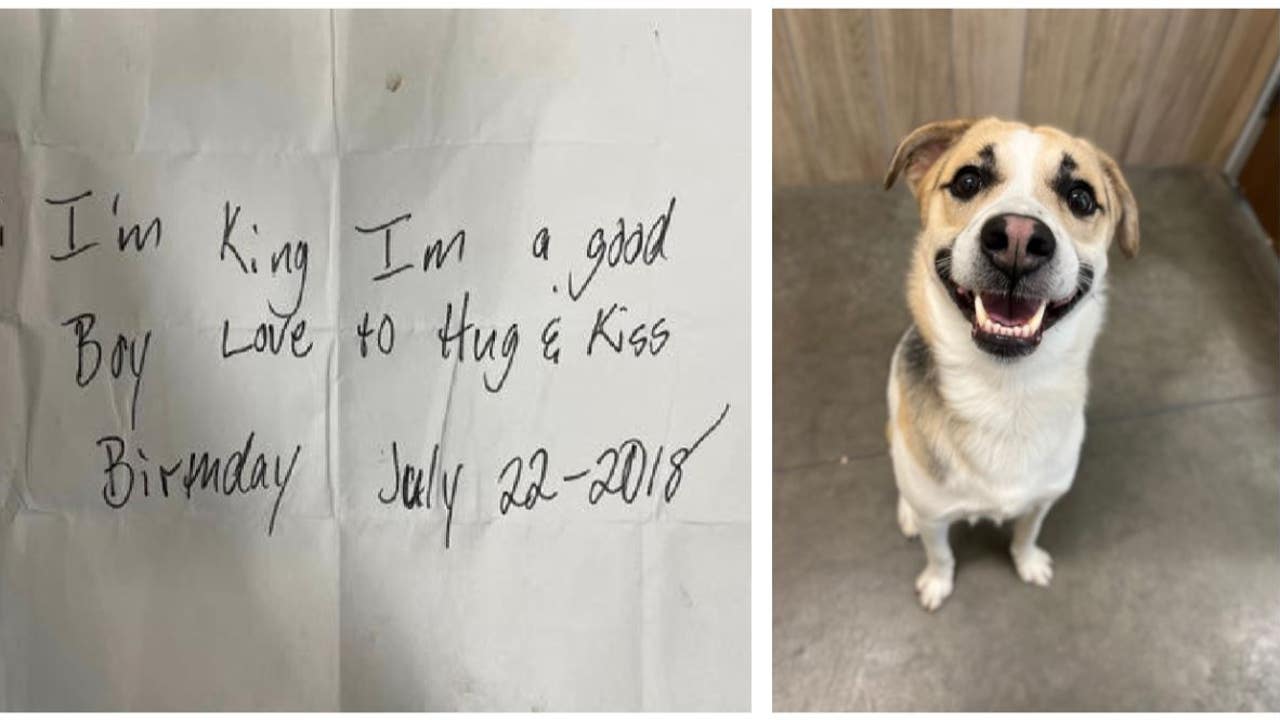 I'm King I'm a good
Boy Love to Hug & Kiss
Birthday July 22-2018